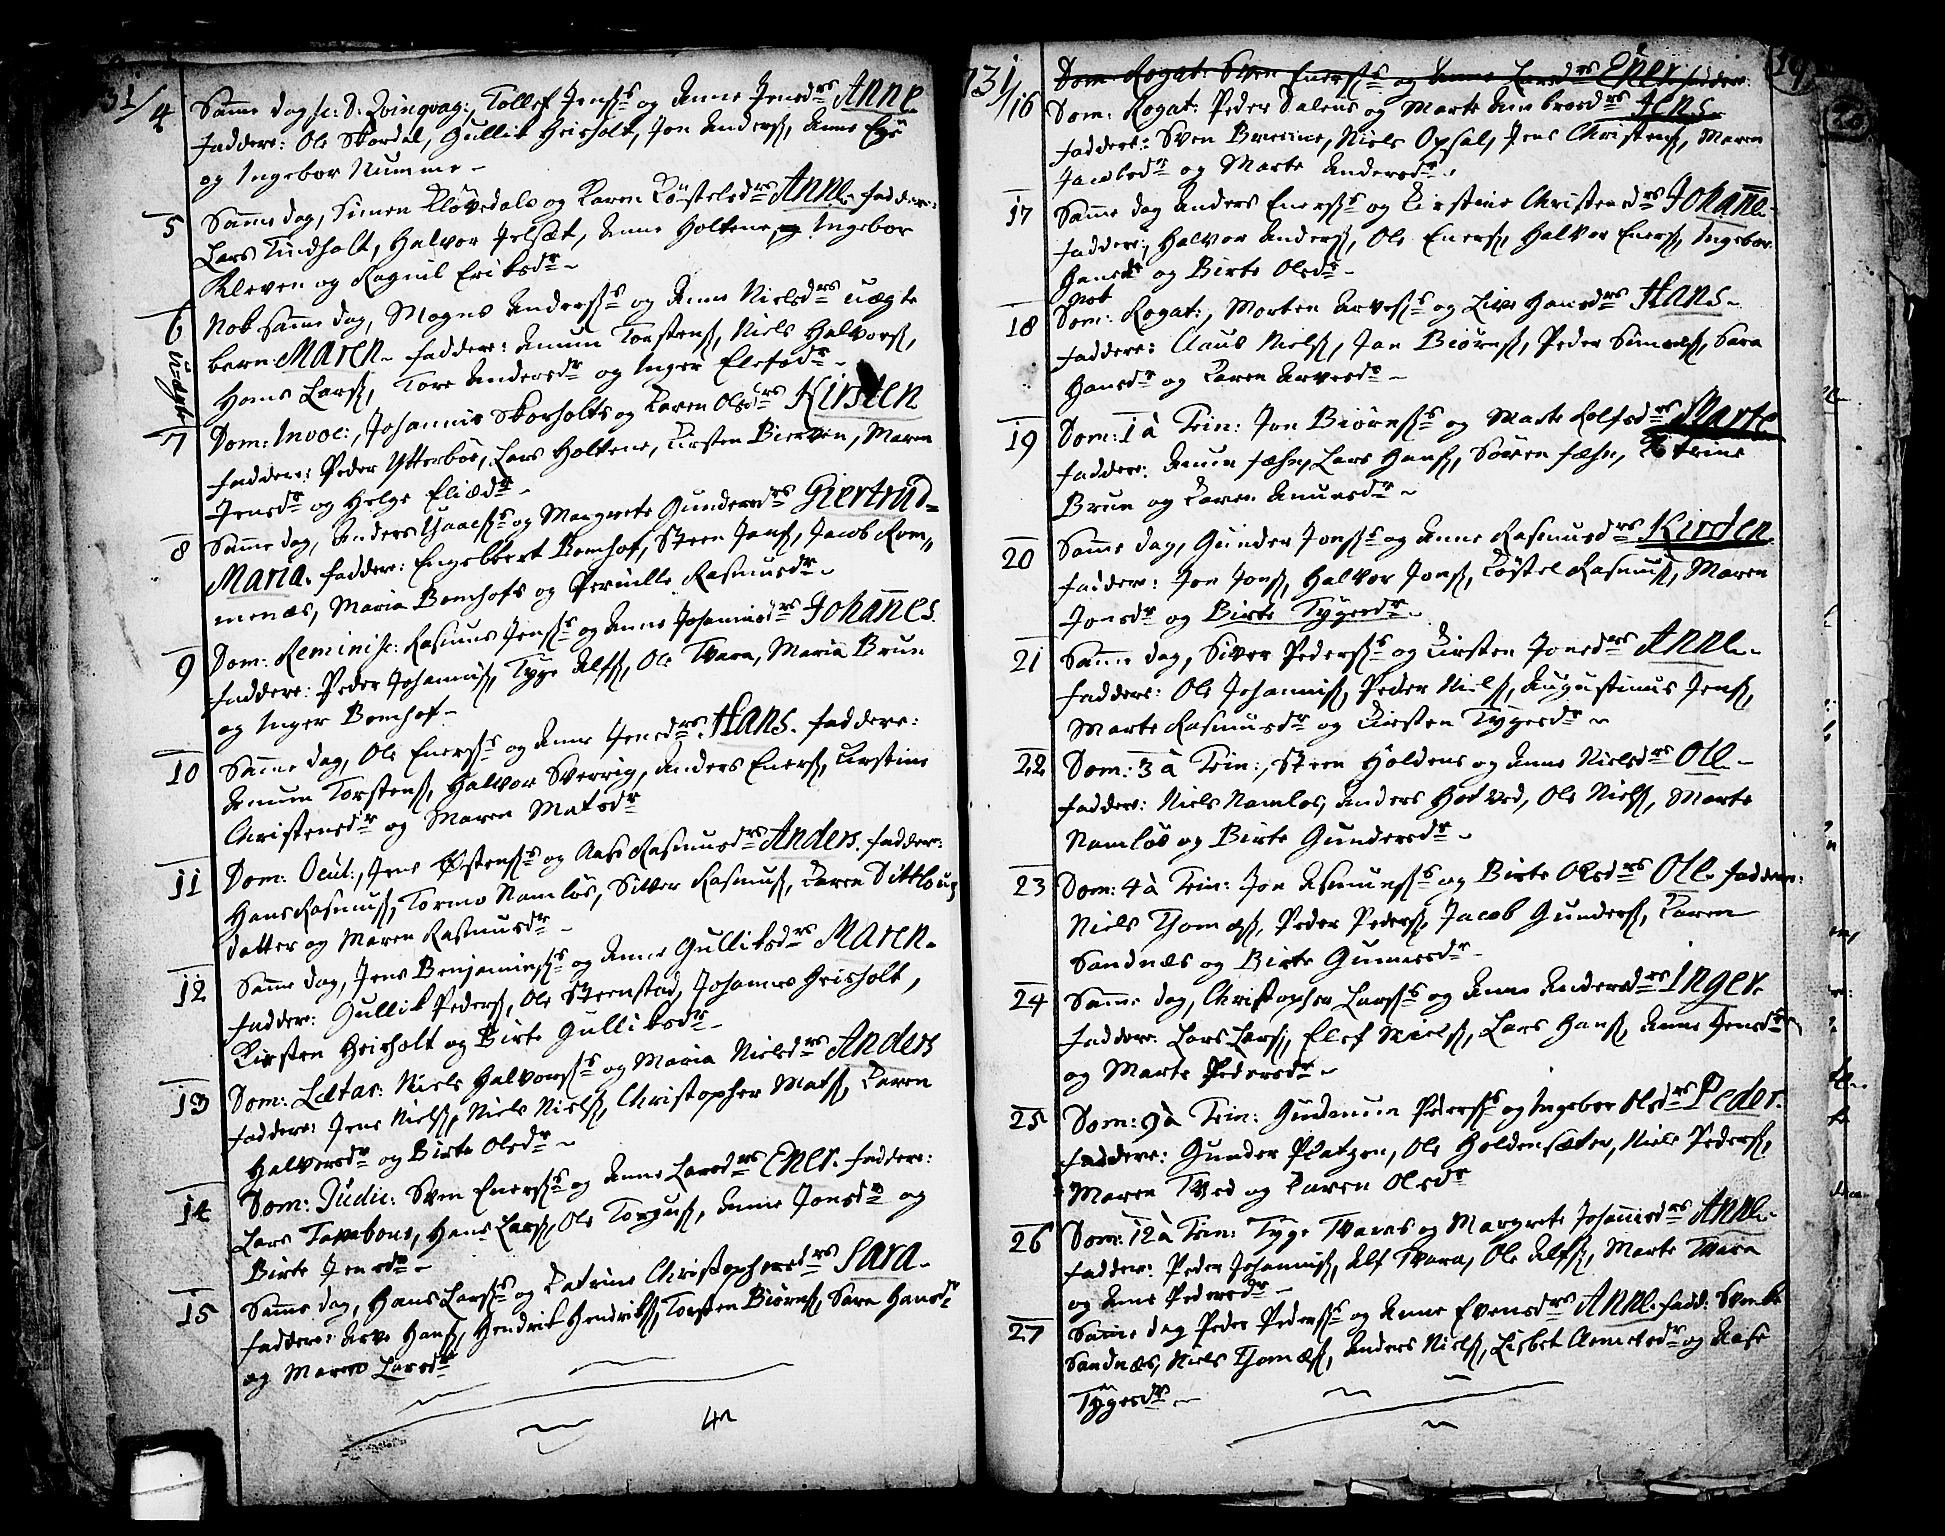 31/4 Same dag sc: D. Qvinqvag:, Tollef Jenss:s og Anne Jensdrs Anne
faddere: Ole Skordal, Gullik Heisholt, Jon Anders:, Anne
og Ingebor Numme
5 Same dag, Simen Kløvedals og Karen Køstelsdrs Anne. faddere:
Lars Tindholt, Halvor Jelset, Anne Holtene, og Ingebor
Kleven og Ragnil Eriksdr
6 Nok same dag, Mogns Anderss:s og Anne Nielsdrs uægte
uægte
barn Maren. faddere: Amun Torstens:, Niels Halvors:,
Hans Lars:, Tore Andersdr og Inger Elefsdr
7 Dom: Invoc:, Johannis Skorholts og Karen Olsdrs Kirsten
faddere: Peder Ytterbøe, Lars Holtene, Kirsten Bierven, Maren
Jensdr og Helge Eliædr
8 Same dag, Anders Isaacss:s og Margrete Gundersdrs Giertrud-
Maria. faddere: Engelbert Bomhof, Steen Jans:, Jacob Rom„
menæs, Maria Bomhofs og Pernille Rasmusdr
9 Dom: Reminisc: Rasmus Jenss:s og Anne Johannisdrs Johannes.
faddere: Peder Johannis:, Tyge Alfs:, Ole Tvara, Maria Brun
og Inger Bomhof
10 Same dag, Ole Enerss:s og Anne Jensdrs Hans. faddere:
Amun Torstens:, Halvor Sverrig, Anders Eners:, Kirstine
Christensdr og Maren Matsdr
11 Dom: Ocul:, Jens Østenss:s og Aase Rasmusdrs Anders. faddere:
Hans Rasmus:, Tormo Namløs, Silver Rasmus:, Karen Dittlous
datter og Maren Rasmusdr
12 Same dag, Jens Benjaminss:s og Anne Gulliksdrs Maren.
faddere: Gullik Peders:, Ole Steenstad, Johannes Heisholt,
Kirsten Heisholt og Birte Gulliksdr
13 Dom: Lætar: Niels Halvorss:s og Maria Nielsdrs Anders
faddere: Jens Niels:, Niels Niels:, Christopher Mats:, Karen
Halvorsdr og Birte Olsdr
14 Dom: Judic: Sven Enerss:s og Anne Larsdrs Ener. faddere:
Lars, Hans Lars:, Ole Torgus:, Anne Jonsdr og
Birte Jensdr
15 Same dag, Hans Larss:s og Katrine Christophersdrs Sara.
faddere: Arve Hans:, Hendrik Hendriks:, Torsten Biørns:, Sara Hansdr
og Maren Larsdr
4
19
20
731/ Dom: Rogat: Sven Enerss:s og Anne Larsdrs Ener. faddere
16 Dom: Rogat: Peder Dalens og Marte Ambrosdrs Jens.
faddere: Sven Breene, Niels Opsal, Jens Christens:, Maren
Jacobsdr og Marte Andersdr
17 Same dag Anders Enerss:s og Kirstine Christensdrs Johane.
faddere:, Halvor Anders:, Ole Eners:, Halvor Eners:, Ingebor
Hansdr og Birte Olsdr
nok
18 Dom: Rogat:, Morten Arvess:s og Live Hansdrs Hans.
faddere: Claus Niels:, Jan Biørns:, Peder Simens:, Sara
Hansdr og Karen Arvesdr
19 Dom: 1 à Trin: Jon Biørnss:s og Marte Rolfsdrs Marte
faddere: Amun fæhn, Lars Hans:, Søren fæhn, Katrine
Brun og Karen Amunsdr
20 Same dag, Gunder Jonss:s og Anne Rasmusdrs Kirsten
faddere: Jon Jons:, Halvor Jons:, Køstel Rasmus:, Maren
Jonsdr og Birte Tygesdr
21 Same dag, Siver Pederss:s og Kirsten Jonsdrs Anne.
faddere: Ole Johannis:, Peder Niels:, Augustinus Jens:,
Marte Rasmusdr og Kirsten Tygesdr
22 Dom: 3 à Trin:, Steen Holdens og Anne Nielsdrs Ole
faddere: Niels Namløs, Anders Hotved, Ole Niels:, Marte
Namløs og Birte Gundersdr
23 Dom: 4 à Trin: Jon Asmunss:s og Birte Olsdrs Ole. faddere:
Niels Thomæs:, Peder Peders:, Jacob Gunders:, Karen
Sandnæs og Birte Gunnersdr
24 Same dag, Christopher Larss:s og Anne Andersdrs Inger.
faddere: Lars Lars:, Elef Niels:, Lars Hans:, Anne Jensdr
og Marte Pedersdr
25 Dom: 9 à Trin: Gudmun Pederss:s og Ingebor Olsdrs Peder.
faddere: Gunder Platzen, Ole Holdensæter, Niels Peders:,
Maren Tved og Karen Olsdr
26 Dom: 12 à Trin: Tyge Tvaras og Margrete Johannisdrs Anne.
faddere: Peder Johannis:, Alf Tvara, Ole Alfs:, Marte Tvara
og Anne Pedersdr
27 Same dag Peder Pederss:s og Anne Evensdrs Anne. fadd: Svenke
Sandnæs, Niels Thomæs:, Anders Niels:, Lisbet og Aase
Tygesdr